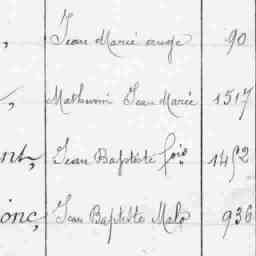 , Jean Marie ange 90
, Mathurin Jean Marie 1517
nt, Jean Baptiste fois 1452
onc, Jean Baptiste Malo 936